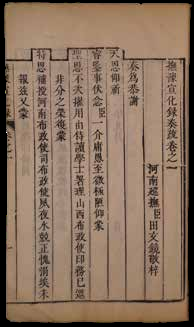 撫豫宣化錄奏疏卷之一
河南巡撫臣田文鏡敬梓
奏為恭謝
天恩仰祈
睿鑒事伏念臣一介庸愚至微極陋仰蒙
聖恩不次擢用由侍讀學士署理山西布政使印務已邀
非分之榮復蒙
特恩補授河南布政使司布政使夙夜氷兢正愧涓埃未
報茲又蒙